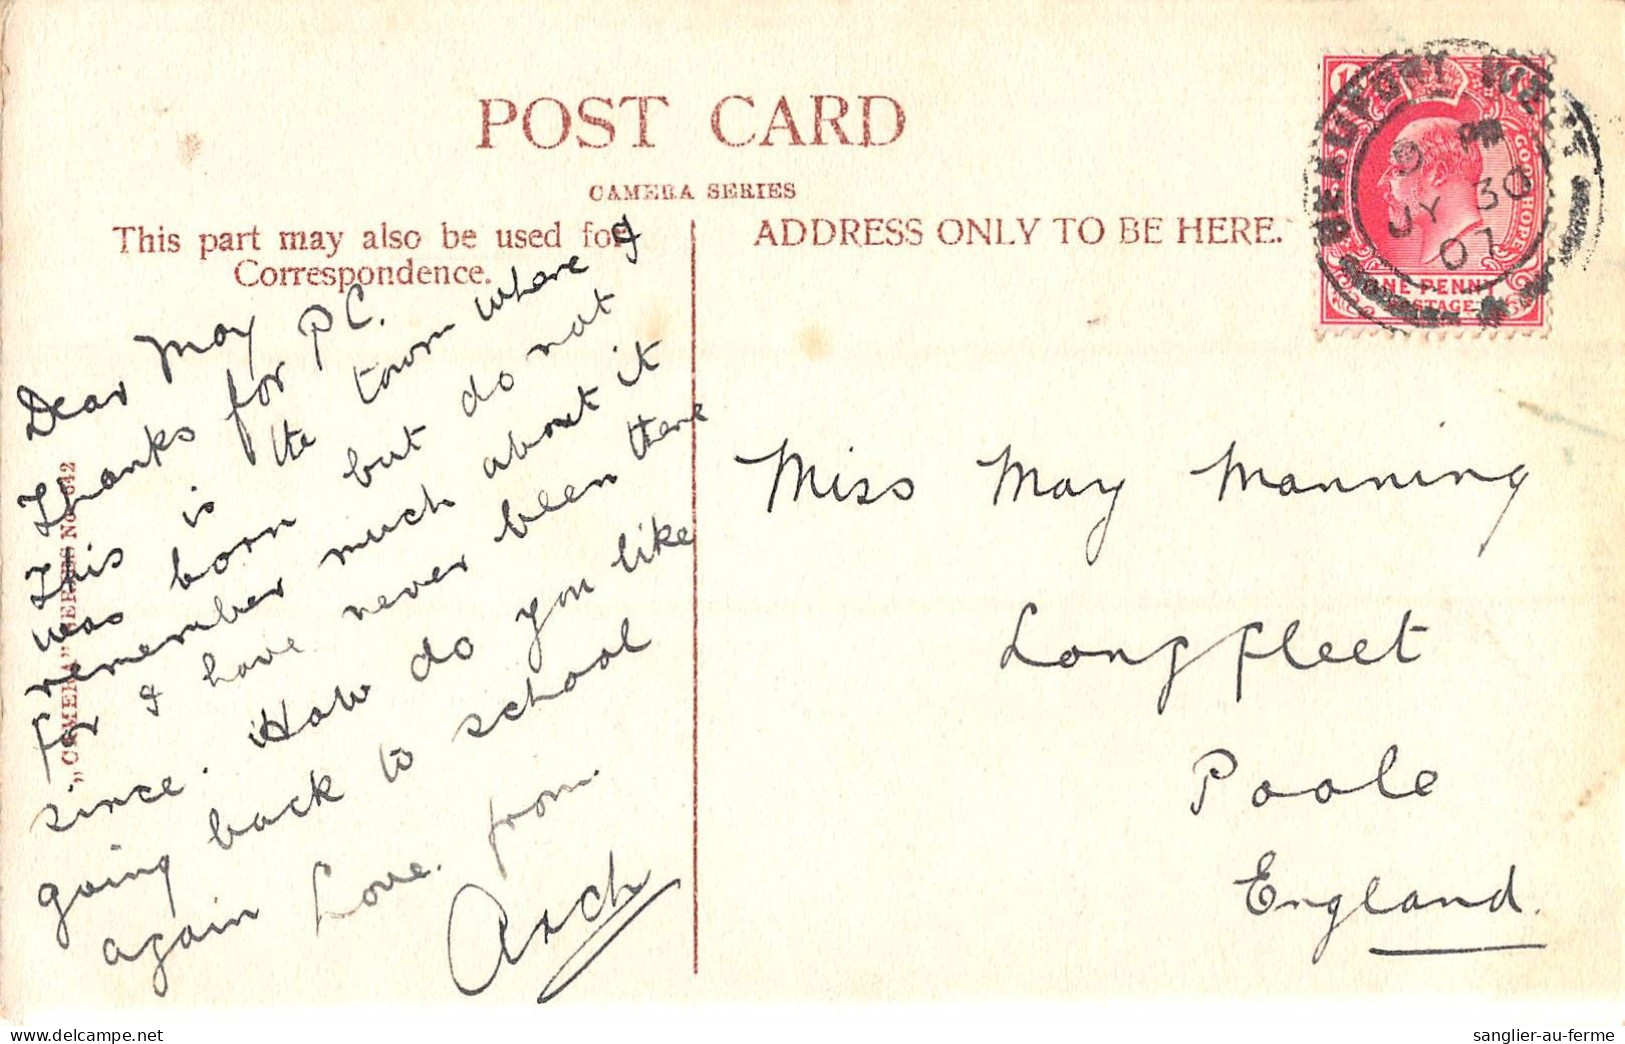 POST CARD
CAMERA SERIES
This part may also be used for
Correspondence.
ADDRESS ONLY TO BE HERE.
Dear May
Thanks for P.C.
This is the town where I
was born but do not
remember much about it
for I have never been there
since. How do you like
going back to school
again Love from.
Arch
"CAMERA" SERIES No 642
Miss May Manning
Longfleet
Poole
England.
BEAUFORT WEST
9 PM
JY 30
07
GOOD HOPE
ONE PENNY
POSTAGE
sanglier-au-ferme
Delcampe.net